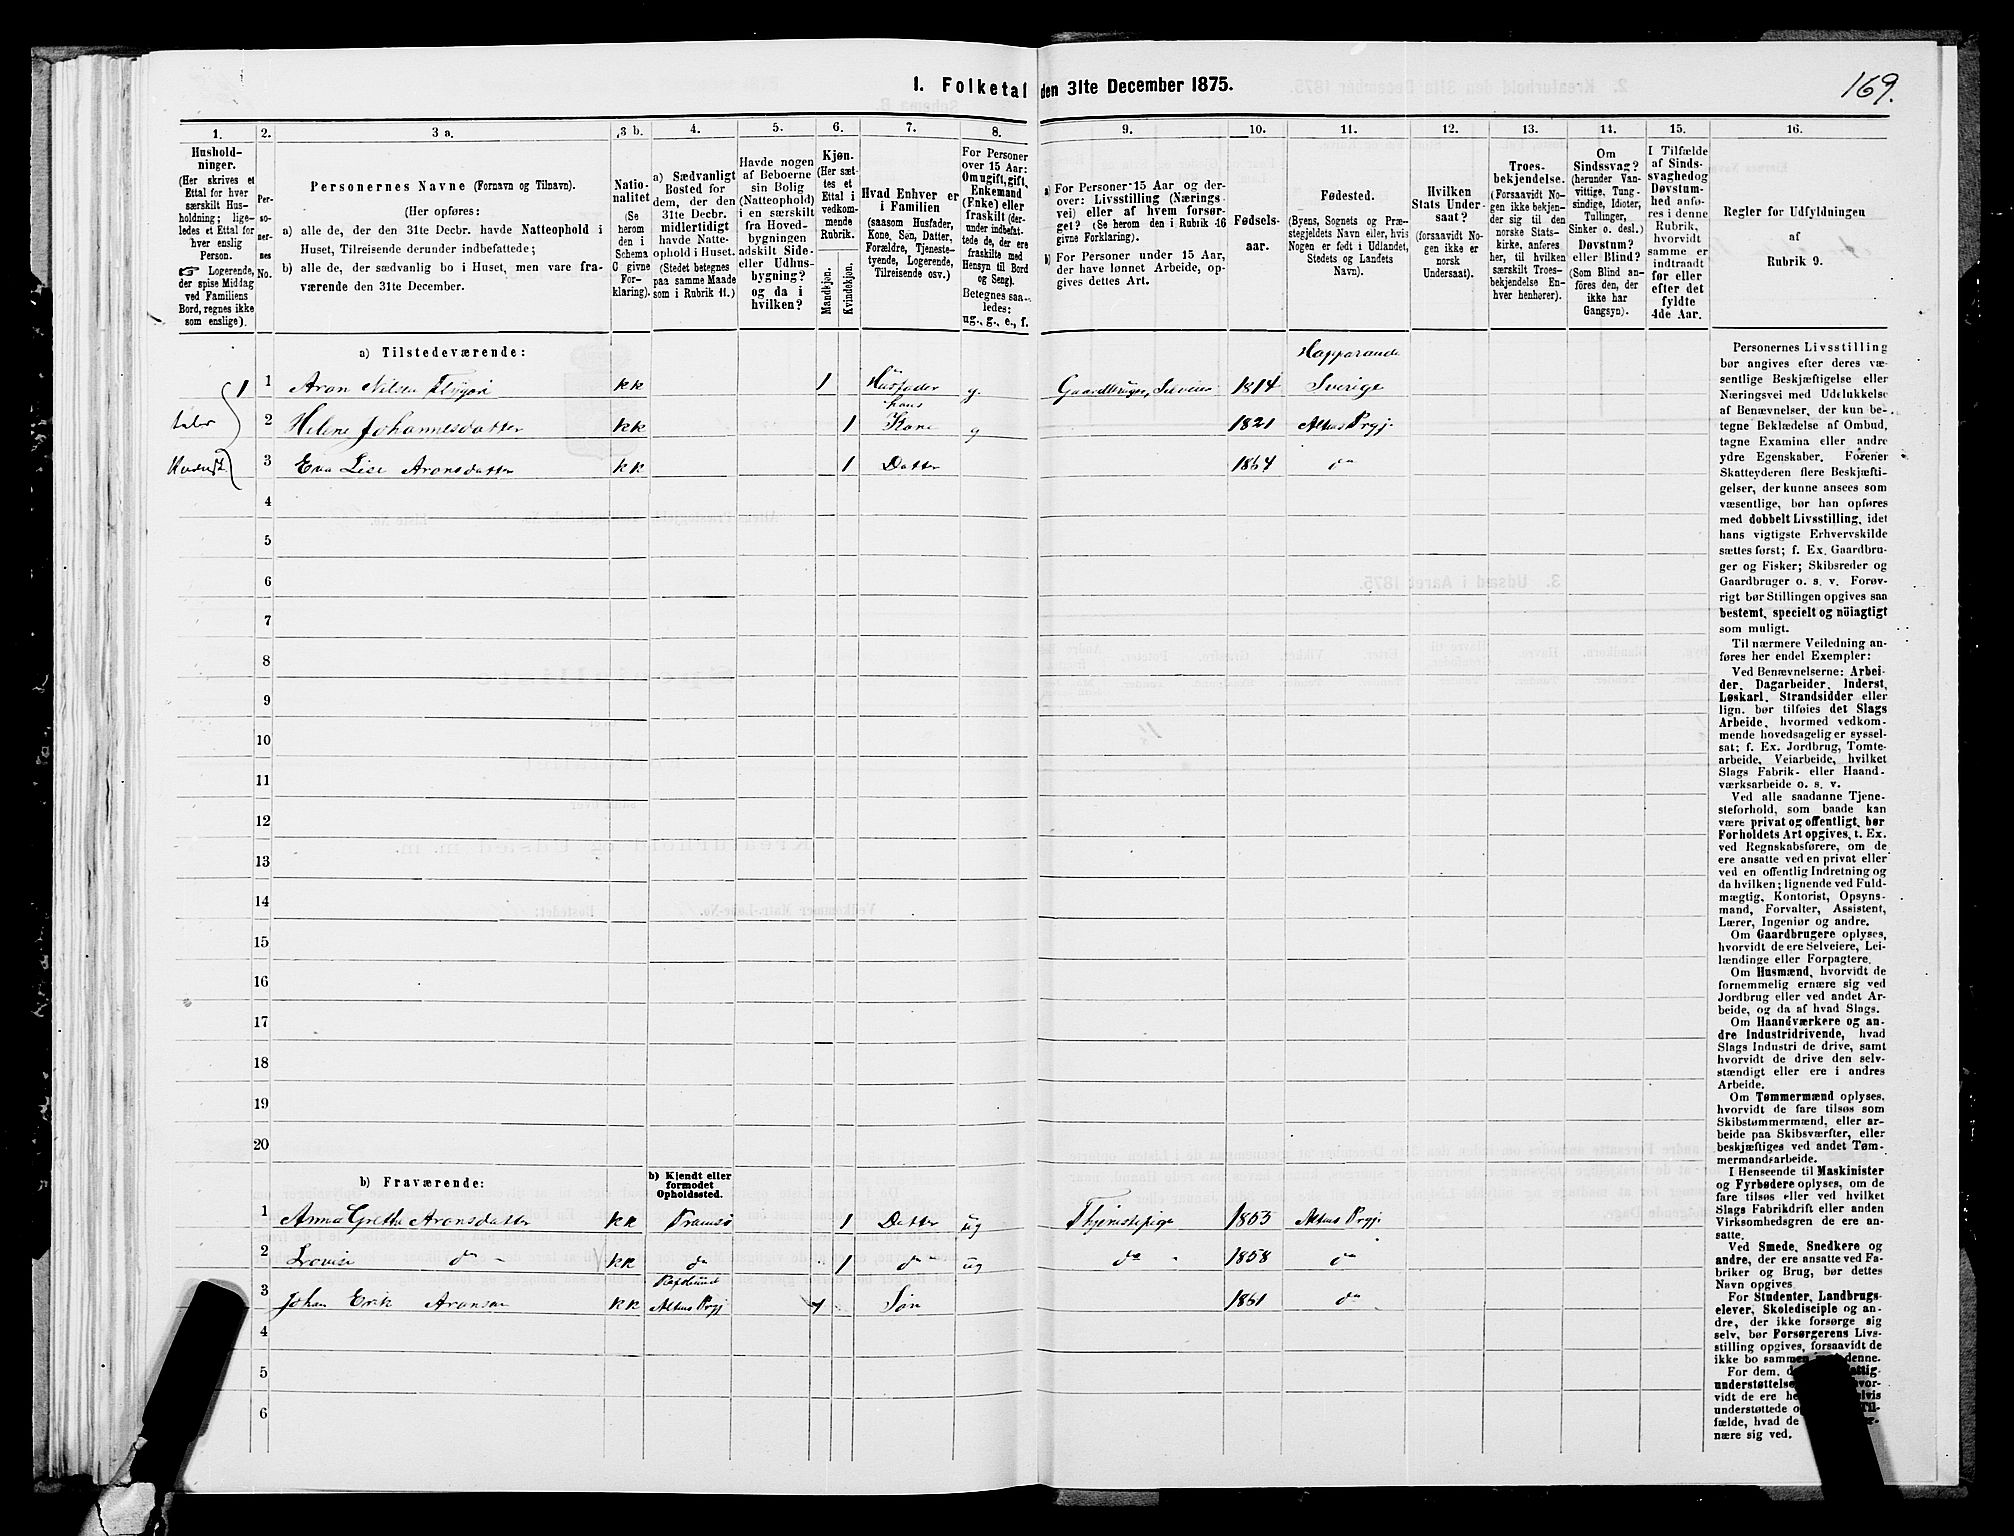 1. Folketal den 31te December 1875.
169.
1.
2.
3 a.
3 b.
4.
5.
6.
7.
8.
9.
10.
11.
12.
13.
14.
15.
16.
Husholdninger.
(Her skrives et Ettal for hver særskilt Husholdning; ligeledes et Ettal for hver enslig Person.
☞ Logerende, der spise Middag ved Familiens Bord, regnes ikke som enslige).
Personernes No.
Personernes Navne (Fornavn og Tilnavn).
(Her opføres:
a) alle de, der den 31te Decbr. havde Natteophold i Huset, Tilreisende derunder indbefattede;
b) alle de, der sædvanlig bo i Huset, men vare fraværende den 31te December.
Nationalitet (Se herom den i Schema C givne Forklaring).
a) Sædvanligt Bosted for dem, der den 31te Decbr. midlertidigt havde Natteophold i Huset. (Stedet betegnes paa samme Maade som i Rubrik 11.)
Havde nogen af Beboerne sin Bolig (Natteophold) i en særskilt fra Hovedbygningen adskilt Side- eller Udhusbygning? og da i hvilken?
Kjøn. (Her sættes et Ettal i vedkommende Rubrik.
Mandkjøn.
Kvindekjøn.
Hvad Enhver er i Familien
(saasom Husfader, Kone, Søn, Datter, Forældre, Tjenestetyende, Logerende, Tilreisende osv.)
For Personer over 15 Aar: Om ugift, gift, Enkemand (Enke) eller fraskilt (derunder indbefattede de, der ere fraskilte med Hensyn til Bord og Seng).
Betegnes saaledes: ug., g., e., f.
a) For Personer 15 Aar og derover: Livsstilling (Næringsvei) eller af hvem forsørget? (Se herom den i Rubrik 16 givne Forklaring).
b) For Personer under 15 Aar, der have lønnet Arbeide, opgives dettes Art.
Fødselsaar.
Fødested.
(Byens, Sognets og Præstegjeldets Navn eller, hvis Nogen er født i Udlandet, Stedets og Landets Navn).
Hvilken Stats Undersaat?
(forsaavidt Nogen ikke er norsk Undersaat).
Troesbekjendelse.
(Forsaavidt Nogen ikke bekjender sig til den norske Statskirke, anføres her, til hvilken særskilt Troesbekjendelse Enhver henhører).
Om Sindssvag? (herunder Vanvittige, Tungsindige, Idioter, Tullinger, Sinker o. desl.) Døvstum? eller Blind? (Som Blind anføres den, der ikke har Gangsyn).
I Tilfælde af Sindssvaghed og Døvstumhed anføres i denne Rubrik, hvorvidt samme er indtraadt før eller efter det fyldte 4de Aar.
Regler for Udfyldningen
af
Rubrik 9.
a) Tilstedeværende:
Happaranda
1 1 Aron Nilsen kk 1 Husfader g. Gaardbruger, Selveier 1814 Sverige
hans
2 Helene Johannesdatter kk 1 Kone g 1821 Altens Prgj.
3 Eva Lise Aronsdatter kk 1 Datter 1864 do
4
5
6
7
8
9
10
11
12
13
14
15
16
17
18
19
20
b) Fraværende:
b) Kjendt eller formodet Opholdssted.
1 Anna Grethe Aronsdatter kk Tromsø 1 Datter ug Tjenestepige 1853 Altens Prgj
2 Lovise do kk do 1 do ug do 1858 do
3 Johan Erik Aronsen kk Altens Prgj 1 Søn 1861 do
4
5
6
Personernes Livsstilling
bør angives efter deres væ-
sentlige Beskjæftigelse eller
Næringsvei med Udelukkelse
af Benævnelser, der kun be-
tegne Beklædelse af Ombud,
tagne Examina eller andre
ydre Egenskaber. Forener
Skatteyderen flere Beskjæfti-
gelser, der kunne ansees som
væsentlige, bør han opføres
med dobbelt Livsstilling, idet
hans vigtigste Erhvervskilde
sættes først; f. Ex. Gaardbru-
ger og Fisker; Skibsreder og
Gaardbruger o. s. v. Forøv-
rigt bør Stillingen opgives saa
bestemt, specielt og nöiagtigt
som muligt.
Til nærmere Veiledning an-
føres her endel Exempler:
Ved Benævnelserne: Arbei-
der, Dagarbeider, Inderst,
Løskarl, Strandsidder eller
lign. bør tilføies det Slags
Arbeide, hvormed vedkom-
mende hovedsagelig er syssel-
sat; f. Ex. Jordbrug, Tomte-
arbeide, Veiarbeide, hvilket
Slags Fabrik- eller Haand-
værksarbeide o. s. v.
Ved alle saadanne Tjene-
steforhold, som baade kan
være privat og offentligt, bør
Forholdets Art opgives, t. Ex.
ved Regnskabsførere, om de
ere ansatte ved en privat eller
ved en offentlig Indretning og
da hvilken; lignende ved Fuld-
mægtig, Kontorist, Opsyns-
mand, Forvalter, Assistent,
Lærer, Ingeniør og andre.
Om Gaardbrugere oplyses,
hvorvidt de ere Selveiere, Lei-
lændinge eller Forpagtere.
Om Husmænd, hvorvidt de
fornemmelig ernære sig ved
Jordbrug eller ved andet Ar-
beide, og da af hvad Slags.
Om Haandværkere og an-
dre Industridrivende, hvad
Slags Industri de drive, samt
hvorvidt de drive den selv-
stændigt eller ere i andres
Arbeide.
Om Tømmermænd oplyses,
hvorvidt de fare tilsøs som
Skibstømmermænd, eller ar-
beide paa Skibsværfter, eller
beskjæftiges ved andet Tøm-
mermandsarbeide.
I Henseende til Maskinister
og Fyrbødere oplyses, om de
fare tilsøs eller ved hvilket
Slags Fabrikdrift eller anden
Virksomhedsgren de ere an-
satte.
Ved Smede, Snedkere og
andre, der ere ansatte ved Fa-
briker og Brug, bør dettes
Navn opgives.
For Studenter, Landbrugs-
elever, Skoledisciple og an-
dre, der ikke forsørge sig
selv, bør Forsørgerens Livs-
stilling opgives, forsaavidt de
ikke bo sammen denne.
For dem,
understøttelse
vidt de ere
understøttede
fælde, hvad de
nære sig ved.